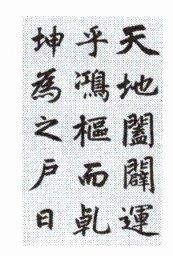 天地闔闢運
乎鴻樞而乹
坤為之戶日